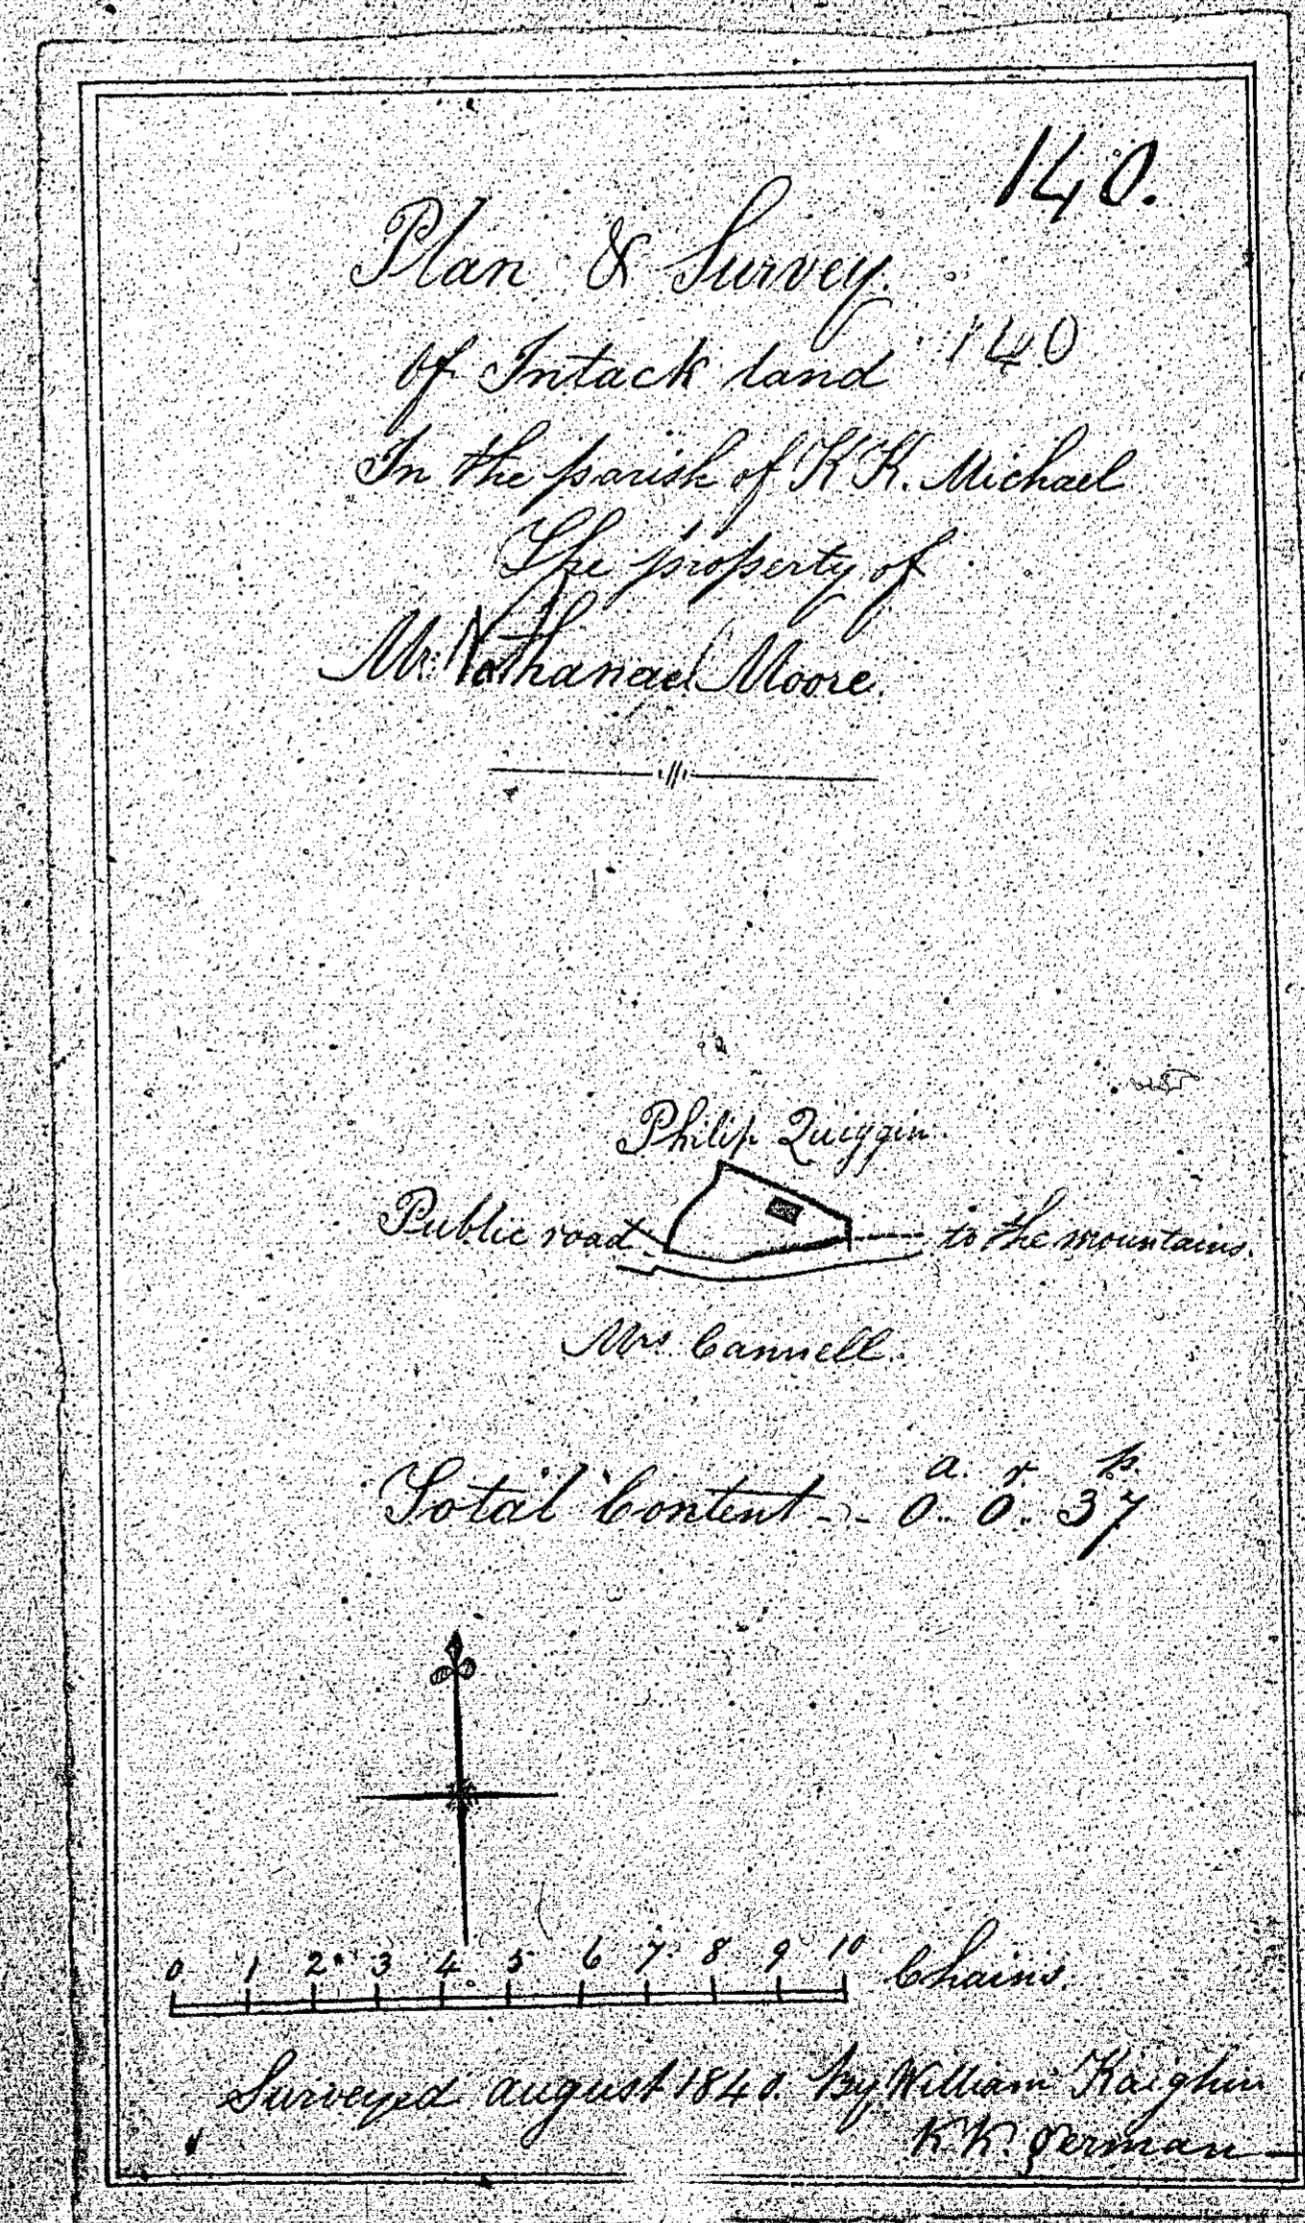 140.
Plan & Survey.
of Intack land 140
In the parish of KK. Michael
The property of
Mr. Nathanael Moore.
Philip Quiggin
Public road to the mountains.
Mrs Cannell.
a. r p.
Total Content -- 0.. 0.. 37
0 1 2 3 4 5 6 7 8 9 10 Chains.
Surveyed august 1840. by William Kaighin
KK. german